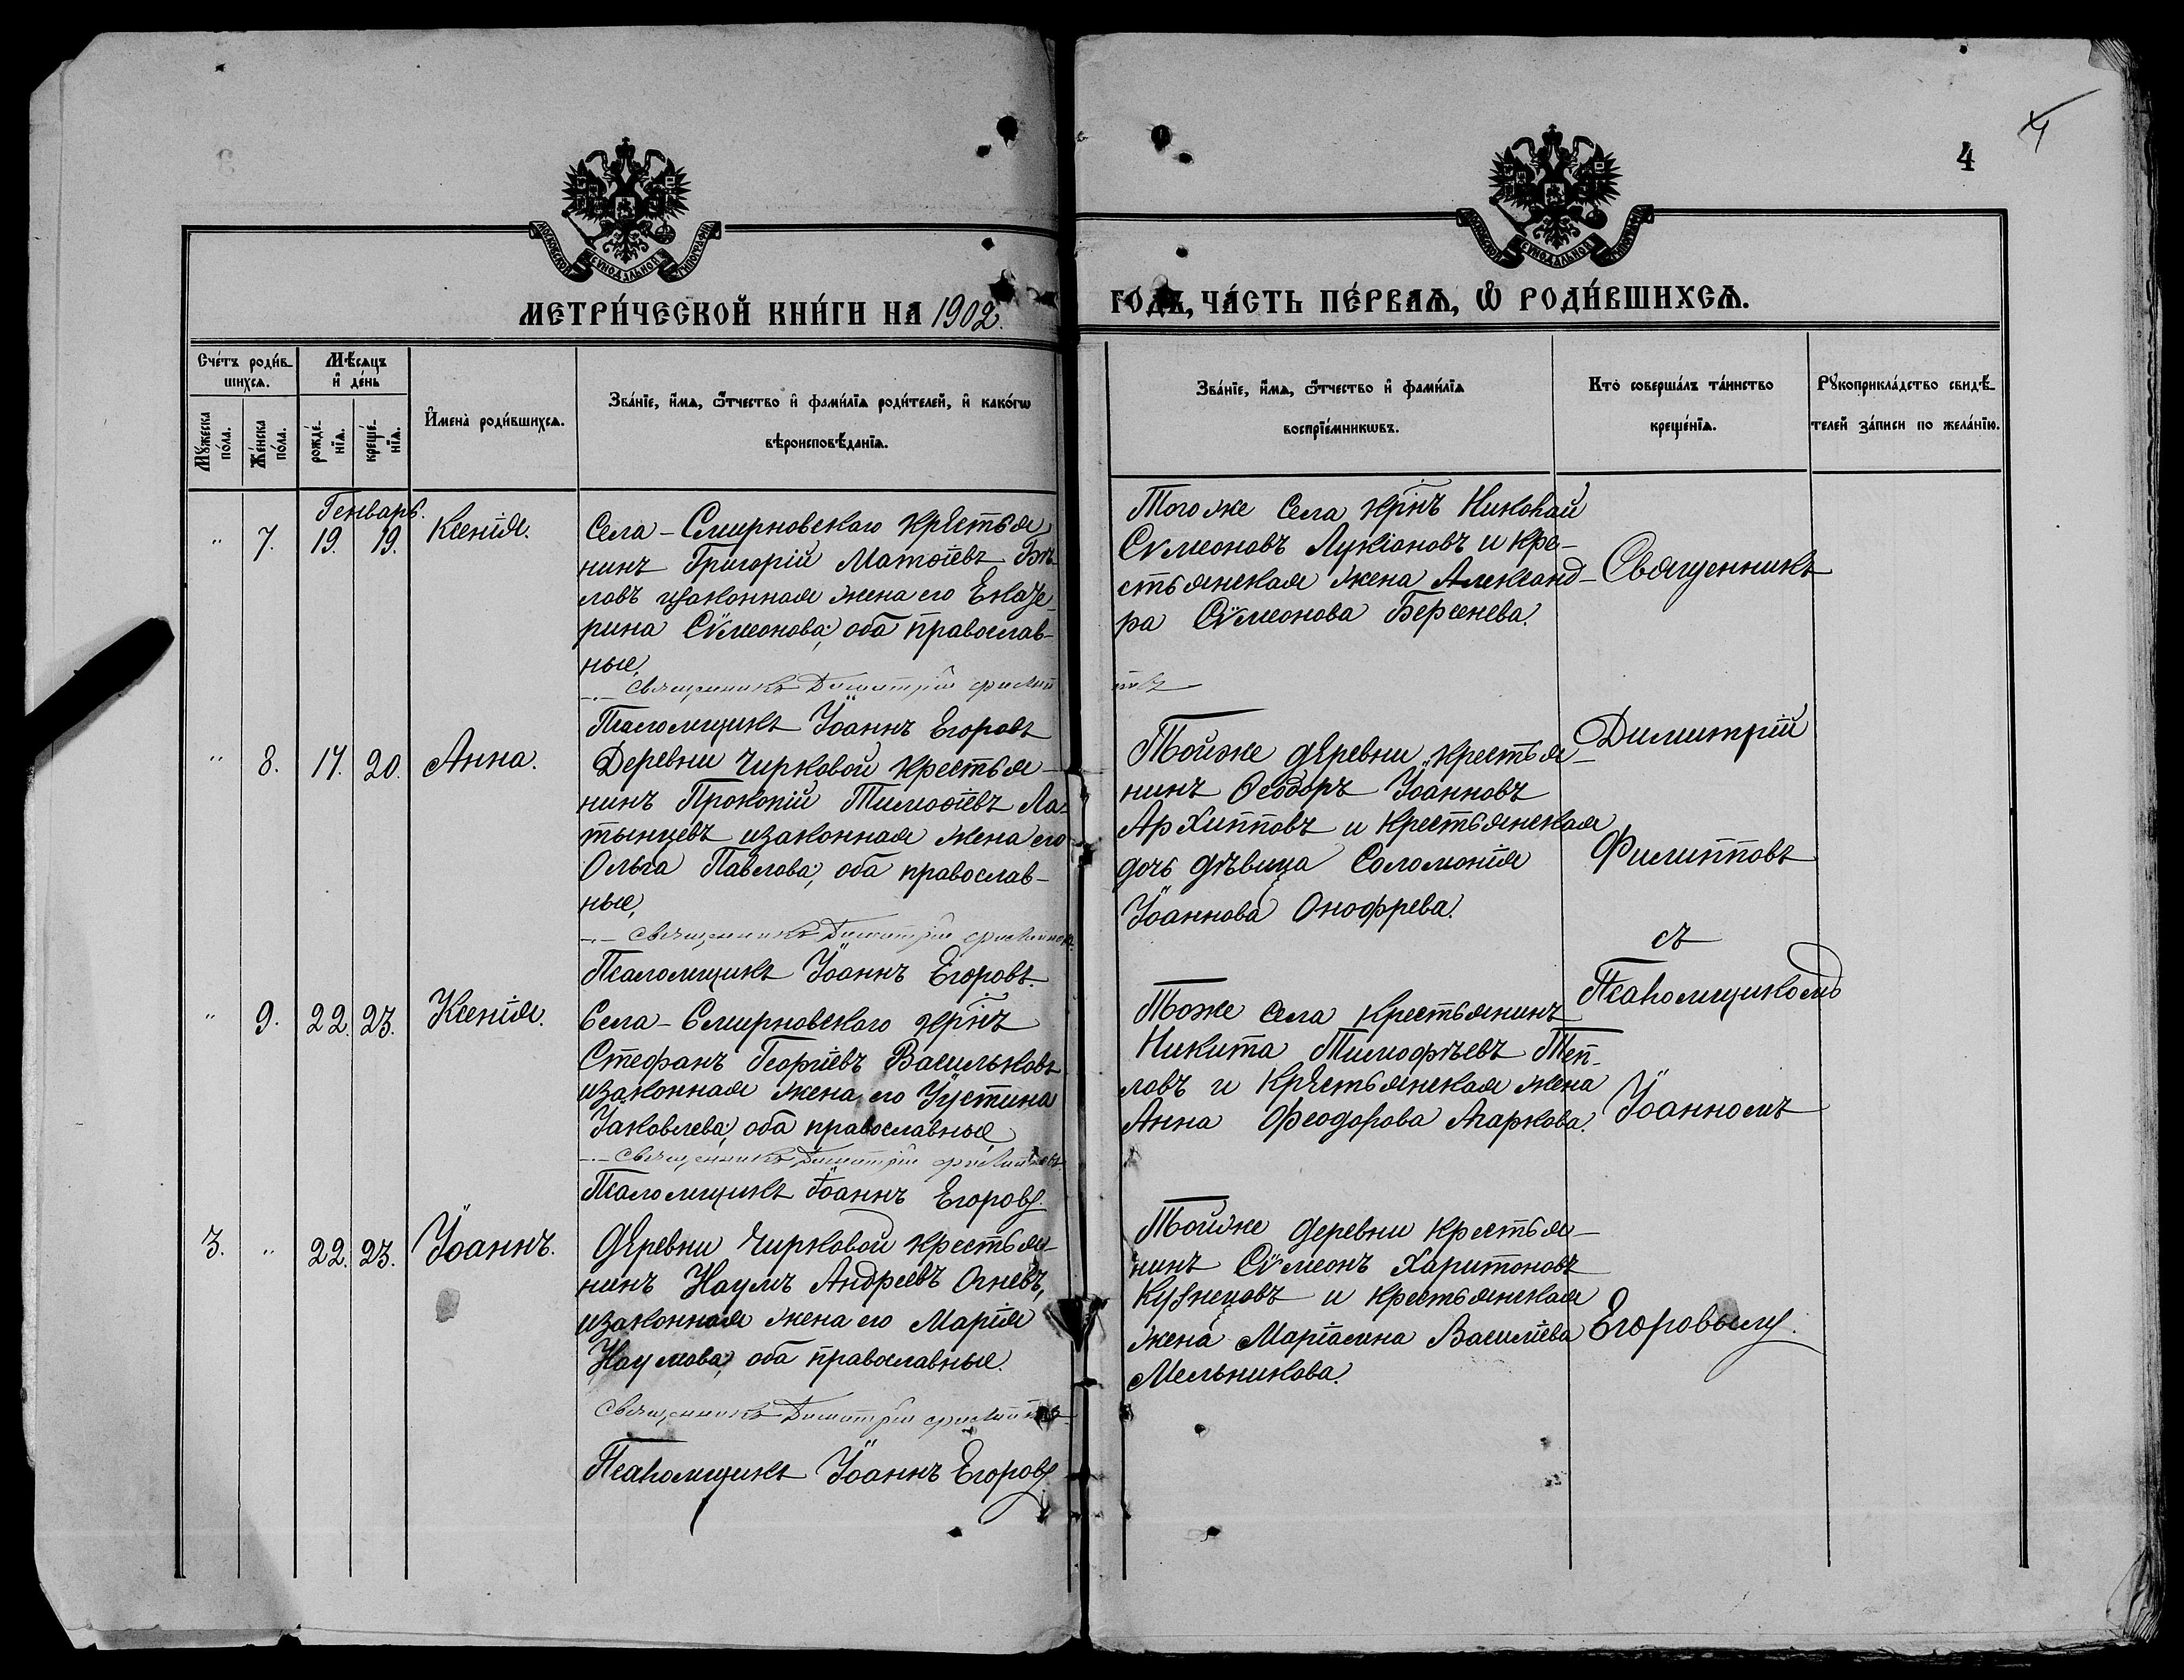 4
4
МОСКОВСКОЙ СУНОДАЛЬНОЙ ТИПОГРАФІИ
МОСКОВСКОЙ СУНОДАЛЬНОЙ ТИПОГРАФІИ
МЕТРИ́ЧЕСКОЙ КНИ́ГИ НА 1902. ГО́ДЪ, ЧА́СТЬ ПЕ́РВАѦ, Ѡ РОДИ́ВШИХСѦ.
Сче́тъ роди́в-
шихсѧ.
Мѣ́сѧцъ
и҆ де́нь
Мꙋ́жеска
по́ла.
Же́нска
по́ла.
рожде́-
нїѧ.
креще́-
нїѧ.
И҆мена̀ роди́вшихсѧ.
Зва́нїе, и҆́мѧ, ѻ҆́тчество и҆ фами́лїѧ роди́телей, и҆ како́гѡ
вѣроисповѣ́данїѧ.
Зва́нїе, и҆́мѧ, ѻ҆́тчество и҆ фами́лїѧ
воспрїе́мникѡвъ.
Кто̀ соверша́лъ та́инство
креще́нїѧ.
Рꙋкоприкла́дство свидѣ́-
телей за́писи по жела́нїю.
Генварь.
" 7. 19. 19. Ксенія.
Села-Смирновского крестья
нинъ Григорій Матѳіевъ Бѣ-
ловъ изаконная жена его Екате-
рина Сѵмеонова; оба православ-
ные,
Священникъ Димитрій Филип
повъ
Псаломщикъ Іоаннъ Егоровъ
Тогоже села крнъ Николай
Сѵмеоновъ Лукіановъ и кре-
стьянская жена Александ-
ра Сѵмеонова Берсенева.
Священникъ
" 8. 17. 20. Анна.
Деревни Чирковой крестья-
нинъ Прокопій Тимоѳіевъ Ла-
тынцевъ изаконная жена его
Ольга Павлова; оба православ-
ные,
Священникъ Димитрій Филиппов
Псаломщикъ Іоаннъ Егоровъ.
Тойже деревни крестья-
нинъ Ѳеодоръ Іоанновъ
Архипповъ и крестьянская
дочь дѣвица Соломонія
Іоаннова Онофрева.
Димитрій
Филипповъ
съ
" 9. 22. 23. Ксенія.
Села-Смирновского крнъ
Стефанъ Георгіевъ Васильковъ
изаконная жена его Іустина
Іаковлева; оба православные
Священникъ Димитрій Филипповъ
Псаломщикъ Іоаннъ Егоровъ.
Тоже села крестьянинъ
Никита Тимофѣевъ Теп-
ловъ и крестьянская жена
Анна Феодорова Агаркова.
Псаломщикомъ
Іоанномъ
3. " 22. 23. Іоаннъ.
Деревни Чирковой крестья-
нинъ Наумъ Андреевъ Огневъ,
изаконная жена его Марія
Наумова; оба православные.
Священникъ Димитрій Филипповъ
Псаломщикъ Іоаннъ Егоровъ
Тойже деревни крестья-
нинъ Сѵмеонъ Харитоновъ
Кузнецовъ и крестьянская
жена Маріамна Василіева
Мельникова.
Егоровымъ.